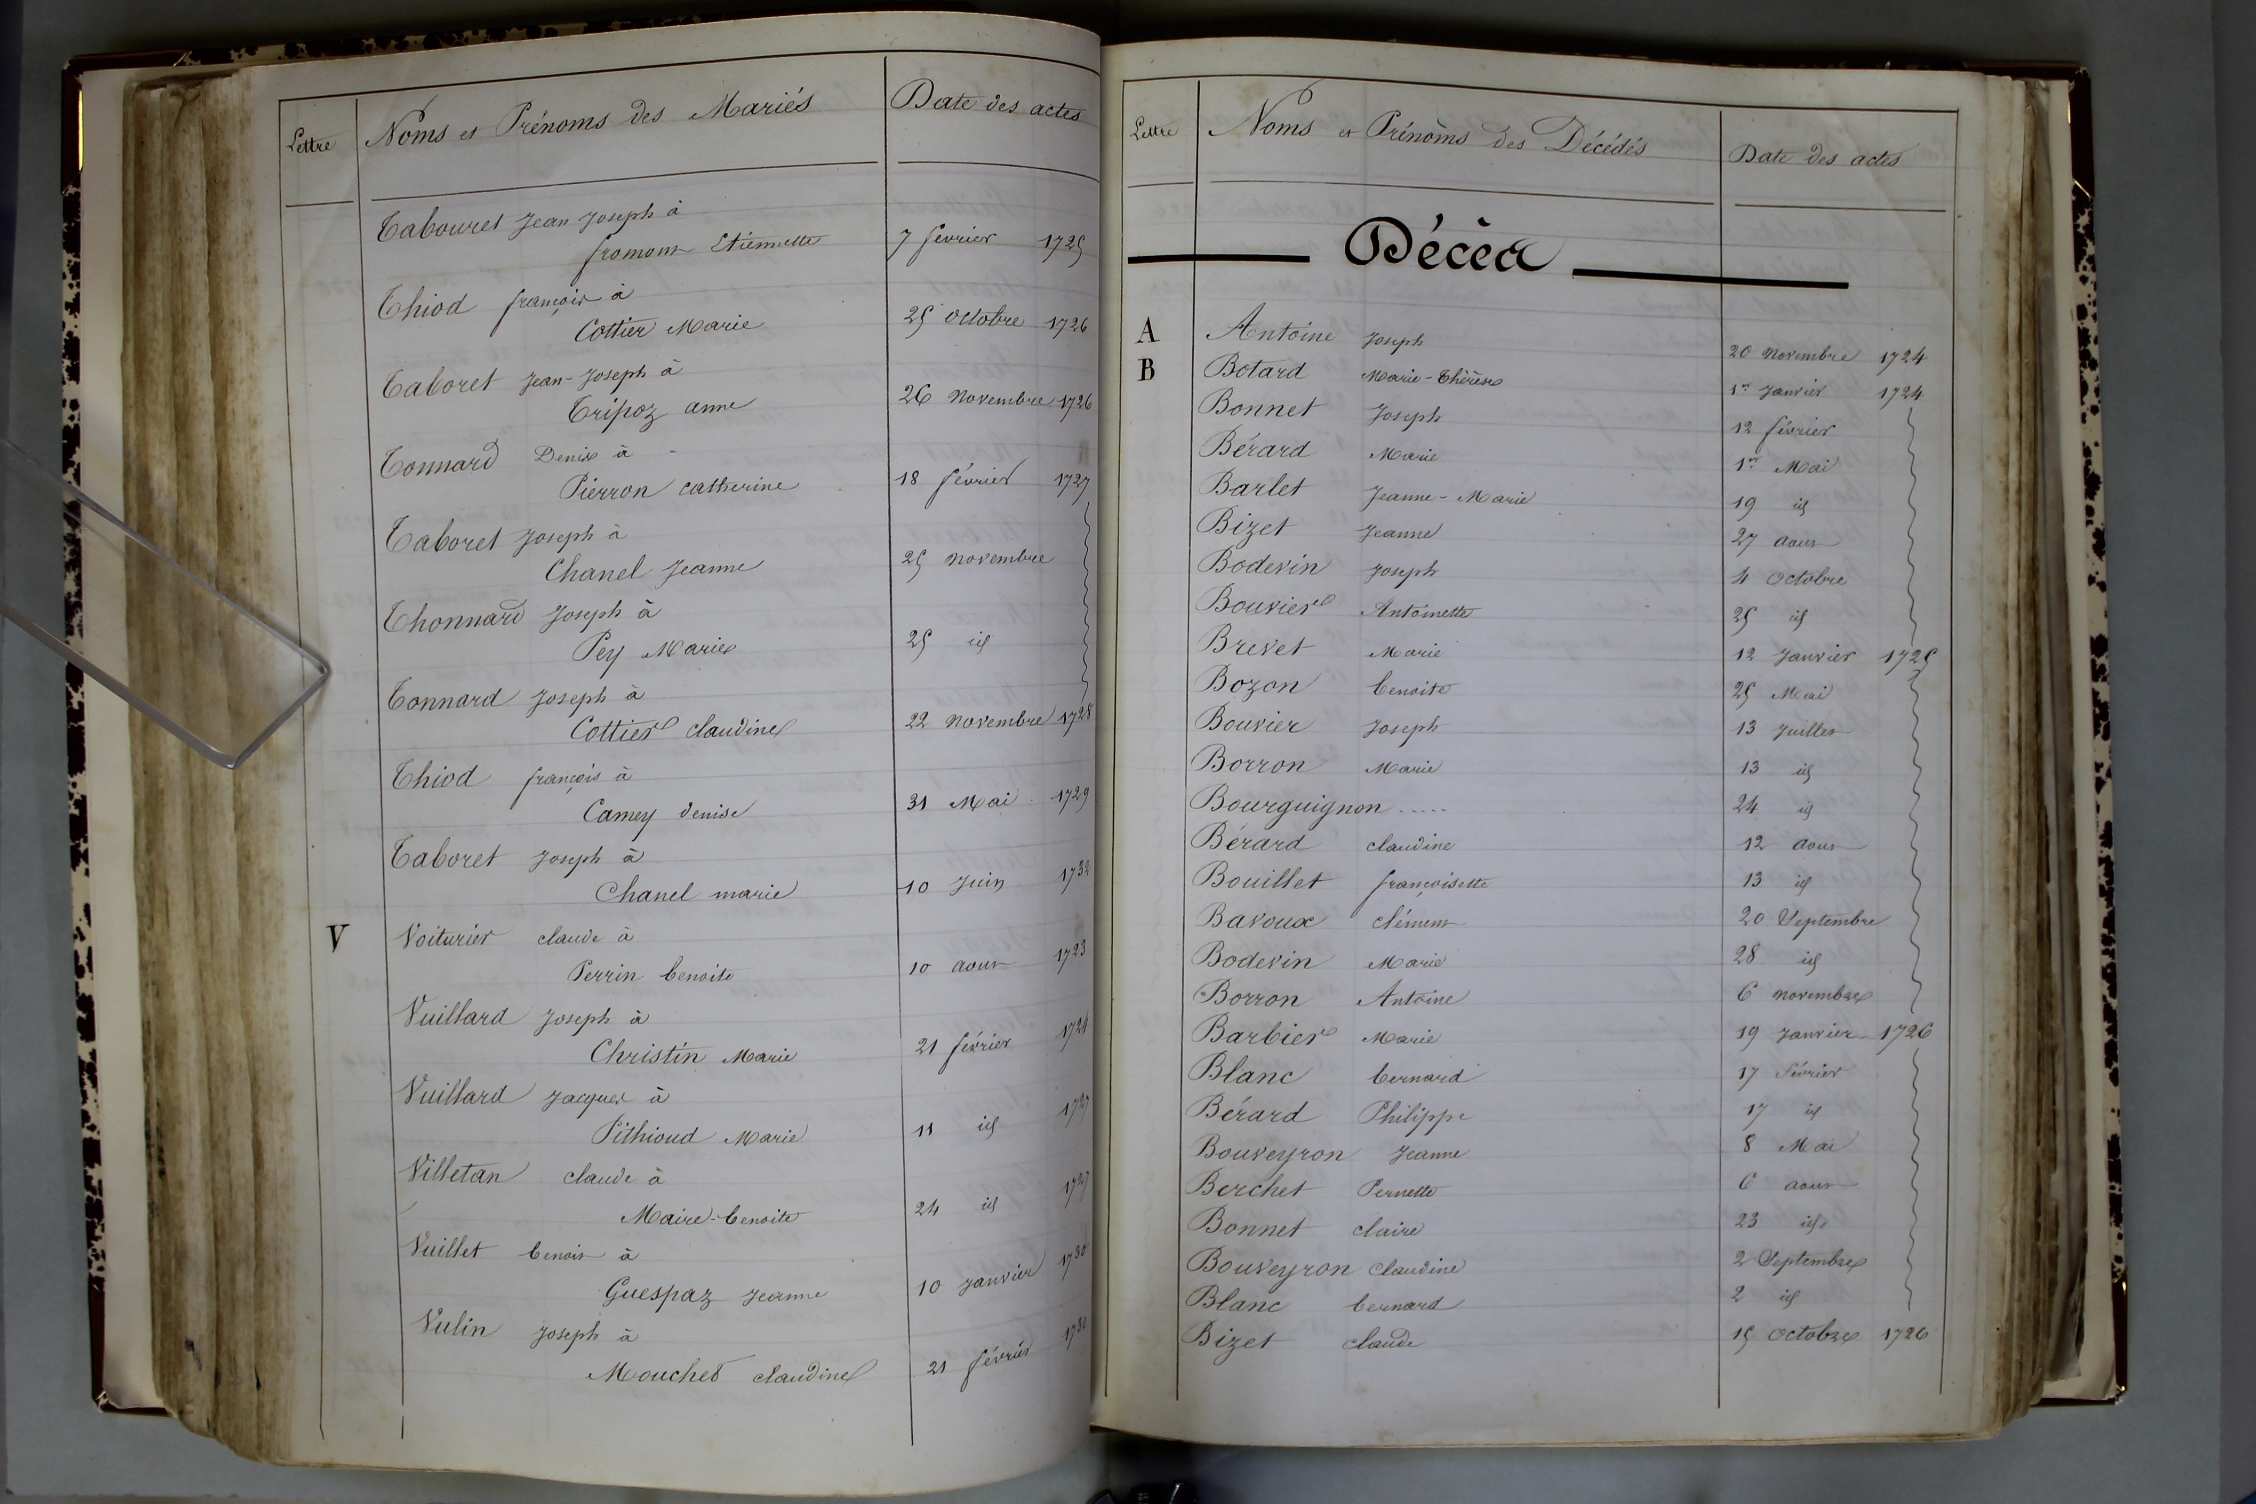 Lettre Noms et Prénoms des Mariés Date des actes
Tabouret Jean Joseph à
fromont Etiennette 7 fevrier 1725
Thiod françois à
Cottier Marie 25 Octobre 1726
Taboret Jean-Joseph à
Tripoz anne 26 Novembre 1726
Tonnard Denise à
Pierron Catherine 18 février 1727
Taboret Joseph à
Chanel Jeanne 25 Novembre
Thonnard Joseph à
Pey Marie 25 id
Tonnard Joseph à
Cottier claudine 22 Novembre 1728
Thiod françois à
Camey denise 31 Mai 1729
Taboret Joseph à
Chanel marie 10 Juin 1732
V Voiturier claude à
Perrin benoite 10 aout 1723
Vuillard Joseph à
Christin Marie 21 février 1724
Vuillard Jacques à
Pithioud Marie 11 id 1727
Villetan claude à
Maire-benoite 24 id 1727
Vuillet benoit à
Guespaz Jeanne 10 Janvier 1730
Vulin Joseph à
Mouchet claudine 21 février 1730
Lettre Noms et Prénoms des Décédés Date des actes
Décès
A Antoine Joseph 20 Novembre 1724
B Botard Marie-Thérèse 1er Janvier 1724
Bonnet Joseph 12 février
Bérard Marie 1er Mai
Barlet Jeanne-Marie 19 id
Bizet Jeanne 27 aout
Bodevin Joseph 4 Octobre
Bouvier Antoinette 25 id
Brevet Marie 12 Janvier 1725
Bozon benoite 25 Mai
Bouvier Joseph 13 Juillet
Borron Marie 13 id
Bourguignon ..... 24 id
Bérard claudine 12 aout
Bouillet françoisette 13 id
Bavoux clément 20 Septembre
Bodevin Marie 28 id
Borron Antoine 6 Novembre
Barbier Marie 19 Janvier 1726
Blanc bernard 17 février
Bérard Philippe 17 id
Bouveyron Jeanne 8 Mai
Berchet Pernette 6 aout
Bonnet claire 23 id
Bouveyron Claudine 2 Septembre
Blanc bernard 2 id
Bizet claude 15 Octobre 1726